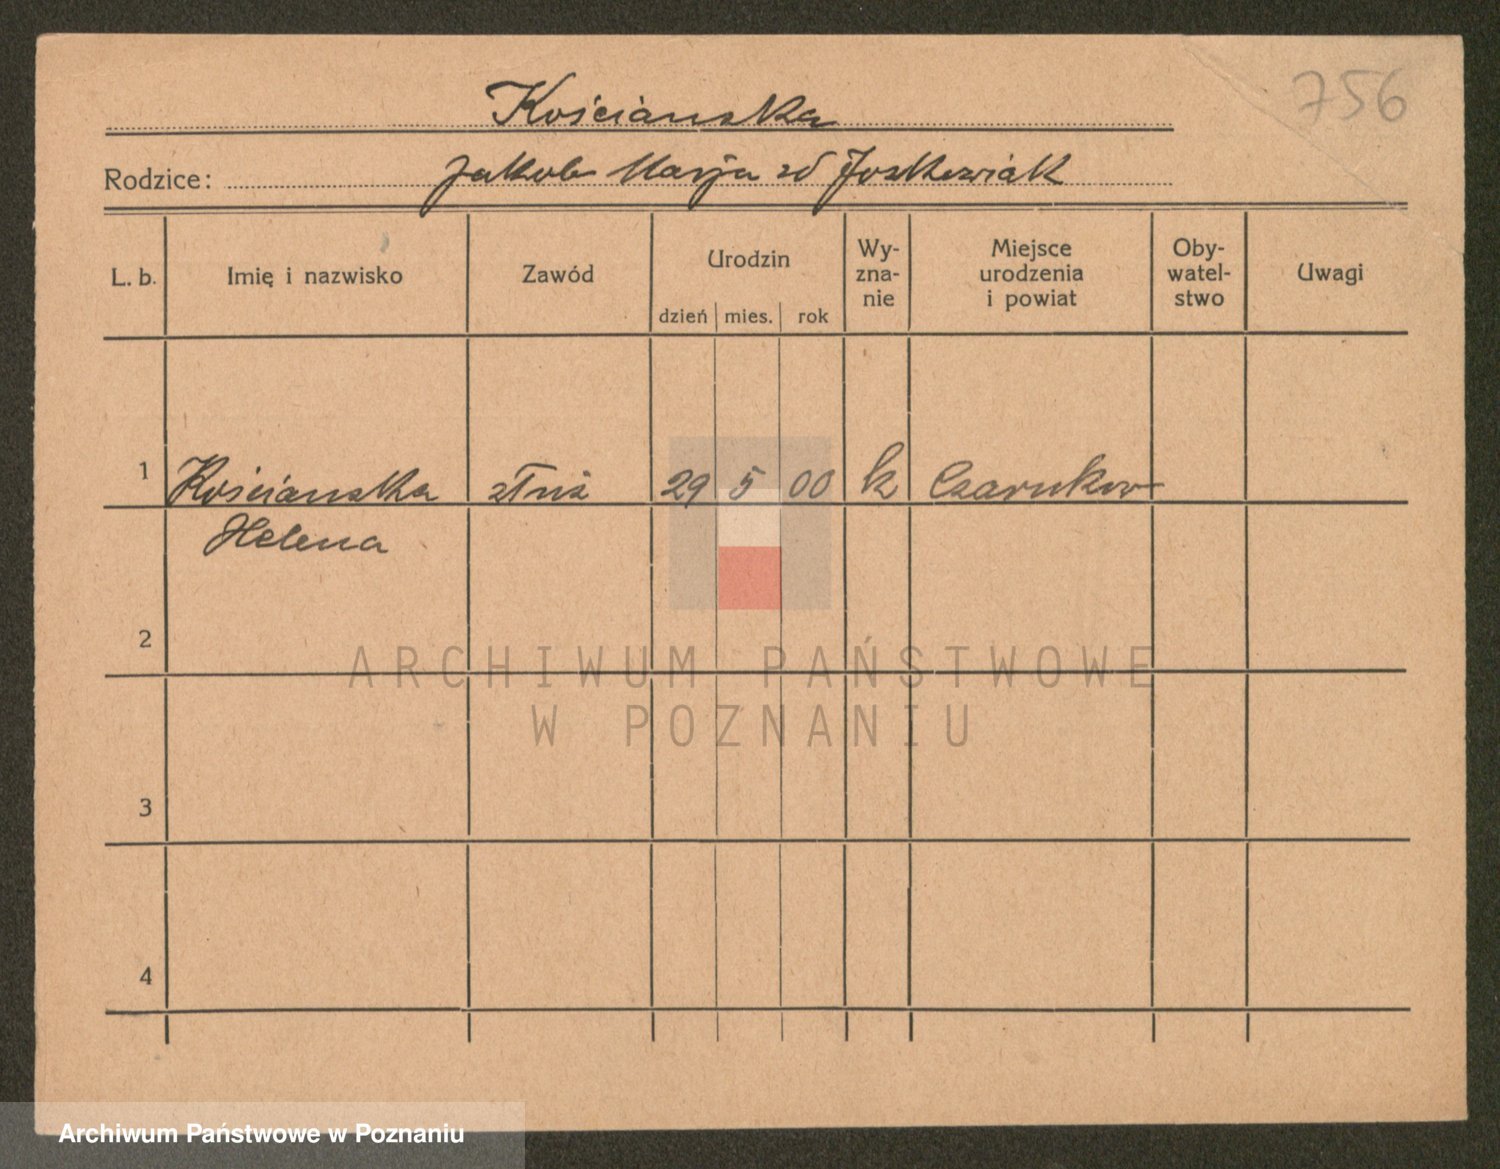 756
Kościanska
Rodzice: Jakob Marja zd Joskowiak
L. b. Imię i nazwisko Zawód Urodzin dzień mies. rok Wy-zna-nie Miejsce urodzenia i powiat Oby-watel-stwo Uwagi
1 Kościanska służ 29 5 00 k Czarnkow
Helena
2
ARCHIWUM PAŃSTWOWE
W POZNANIU
3
4
Archiwum Państwowe w Poznaniu